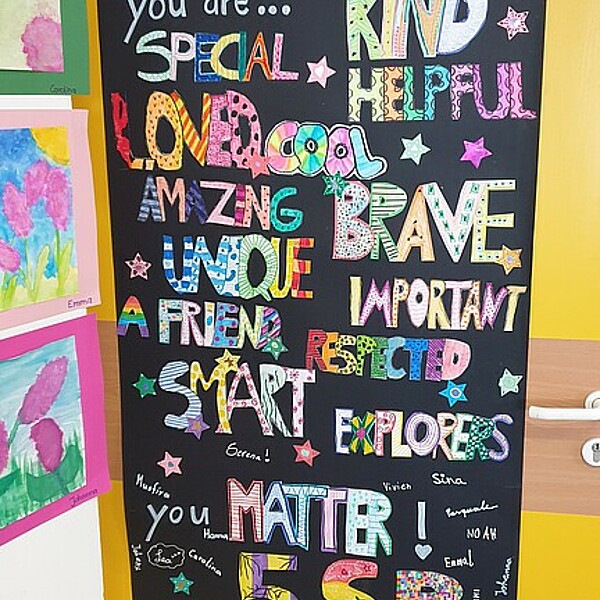 you are...
KIND
SPECIAL
HELPFUL
LOVED
COOL
AMAZING
BRAVE
UNIQUE
IMPORTANT
A FRIEND
RESPECTED
SMART
EXPLORERS
Serena!
Vivien
Sina
you MATTER!
Hanna
NOAH
Emmal
Lea...
Carolina
Johanna
Carolina
Emma
Johanna